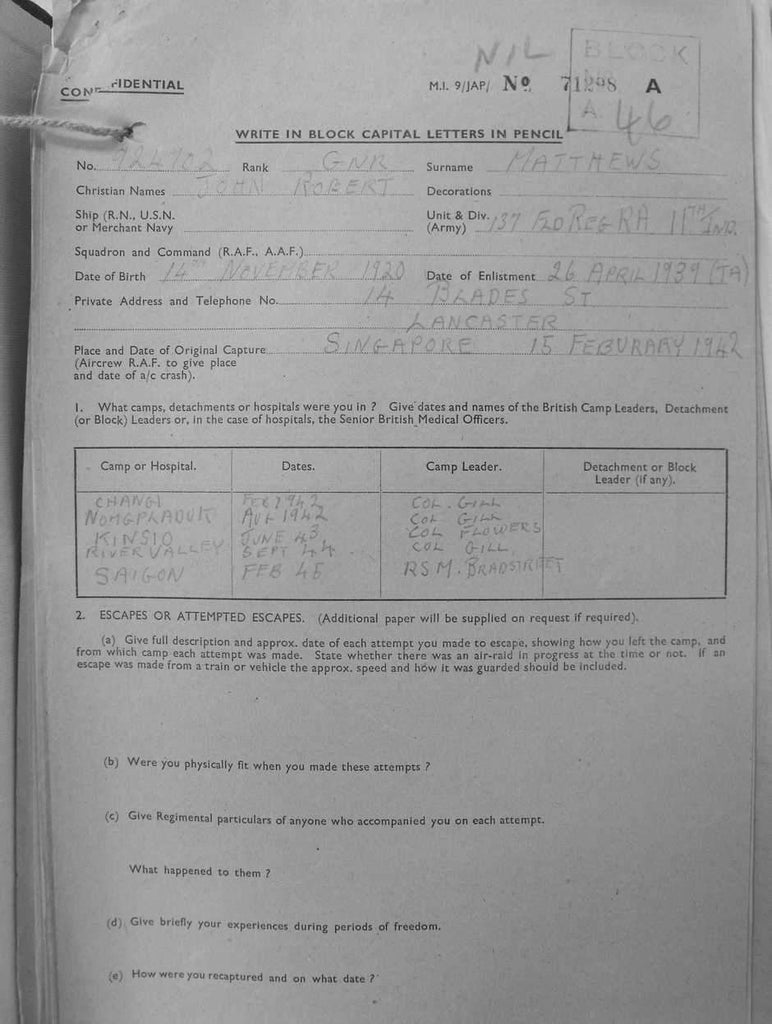 NIL
BLOCK
A
46
CONFIDENTIAL
M.I. 9/JAP/ Nº 71298 A
WRITE IN BLOCK CAPITAL LETTERS IN PENCIL
No. 924702 Rank GNR Surname MATTHEWS
Christian Names JOHN ROBERT Decorations
Ship (R.N., U.S.N. or Merchant Navy
Unit & Div. (Army) 137 FLD REG RA 11TH IND.
Squadron and Command (R.A.F., A.A.F.)
Date of Birth 14TH NOVEMBER 1920 Date of Enlistment 26 APRIL 1939 (TA)
Private Address and Telephone No. 14 BLADES ST
LANCASTER
Place and Date of Original Capture SINGAPORE 15 FEBURARY 1942
(Aircrew R.A.F. to give place
and date of a/c crash).
1. What camps, detachments or hospitals were you in ? Give dates and names of the British Camp Leaders, Detachment
(or Block) Leaders or, in the case of hospitals, the Senior British Medical Officers.
Camp or Hospital. Dates. Camp Leader. Detachment or Block
Leader (if any).
CHANGI FEB 1942 COL. GILL
NOMGPLADUK AUG 1942 COL GILL
KINSIO JUNE 43 COL FLOWERS
RIVER VALLEY SEPT 44 COL GILL
SAIGON FEB 45 RSM. BRADSTREET
2. ESCAPES OR ATTEMPTED ESCAPES. (Additional paper will be supplied on request if required).
(a) Give full description and approx. date of each attempt you made to escape, showing how you left the camp, and
from which camp each attempt was made. State whether there was an air-raid in progress at the time or not. If an
escape was made from a train or vehicle the approx. speed and how it was guarded should be included.
(b) Were you physically fit when you made these attempts ?
(c) Give Regimental particulars of anyone who accompanied you on each attempt.
What happened to them ?
(d) Give briefly your experiences during periods of freedom.
(e) How were you recaptured and on what date ?